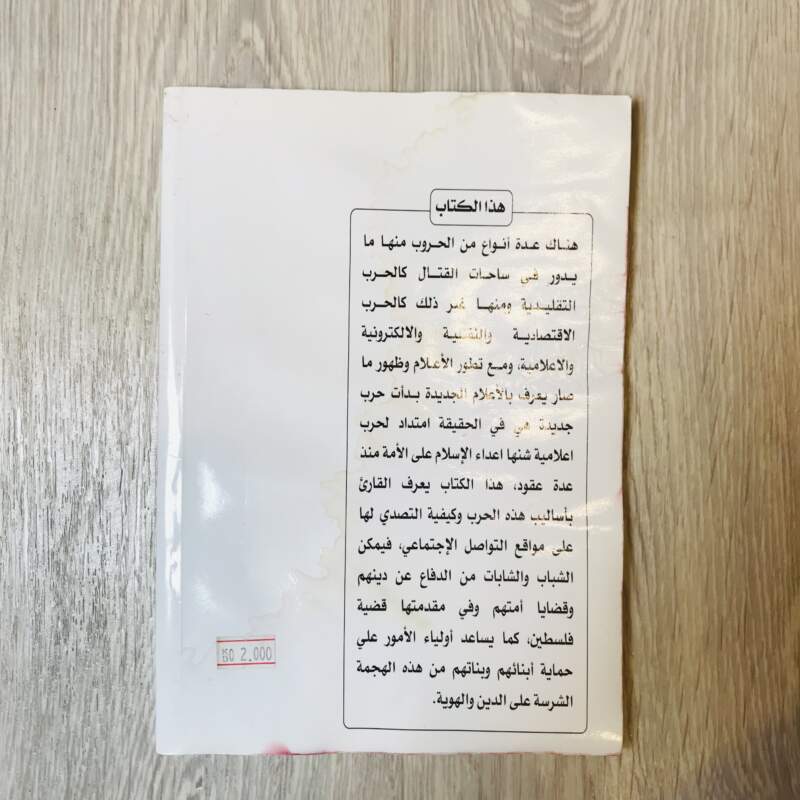 هذا الكتاب
هناك عدة أنواع من الحروب منها ما
يدور في ساحات القتال كالحرب
التقليدية ومنها غير ذلك كالحرب
الاقتصادية والنفسية والالكترونية
والاعلامية، ومع تطور الأعلام وظهور ما
صار يعرف بالأعلام الجديدة بدأت حرب
جديدة هي في الحقيقة امتداد لحرب
اعلامية شنها اعداء الإسلام على الأمة منذ
عدة عقود، هذا الكتاب يعرف القارئ
بأساليب هذه الحرب وكيفية التصدي لها
على مواقع التواصل الإجتماعي، فيمكن
الشباب والشابات من الدفاع عن دينهم
وقضايا أمتهم وفي مقدمتها قضية
فلسطين، كما يساعد أولياء الأمور علي
حماية أبنائهم وبناتهم من هذه الهجمة
الشرسة على الدين والهوية.
2.000